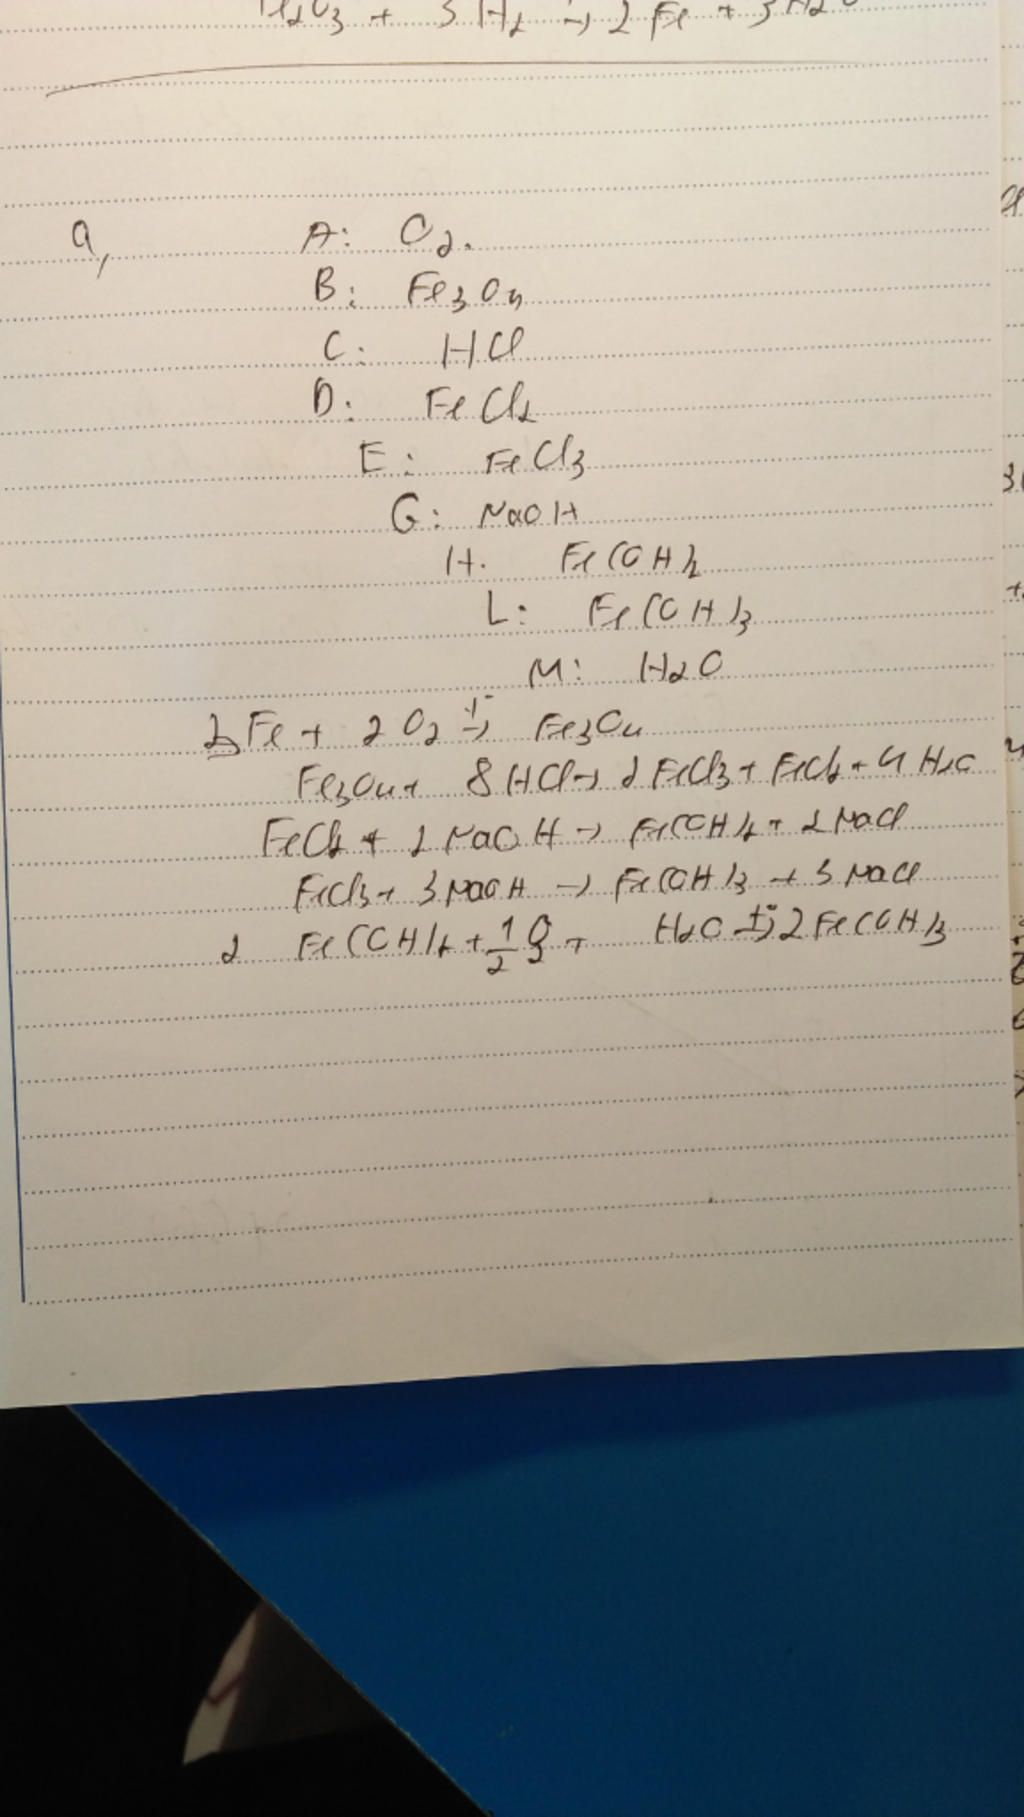 Fe2O3 + 3 H2 → 2 Fe + 3 H2O
a,
A: O2.
B: Fe3O4
C: HCl
D: FeCl2
E: FeCl3
G: NaOH
H. Fe(OH)2
L: Fe(OH)3
M: H2O
3Fe + 2 O2 t°→ Fe3O4
Fe3O4 + 8 HCl → 2 FeCl3 + FeCl2 + 4 H2O
FeCl2 + 2 NaOH → Fe(OH)2 + 2 NaCl
FeCl3 + 3 NaOH → Fe(OH)3 + 3 NaCl
2 Fe(OH)2 + 1/2 O2 + H2O t°→ 2 Fe(OH)3